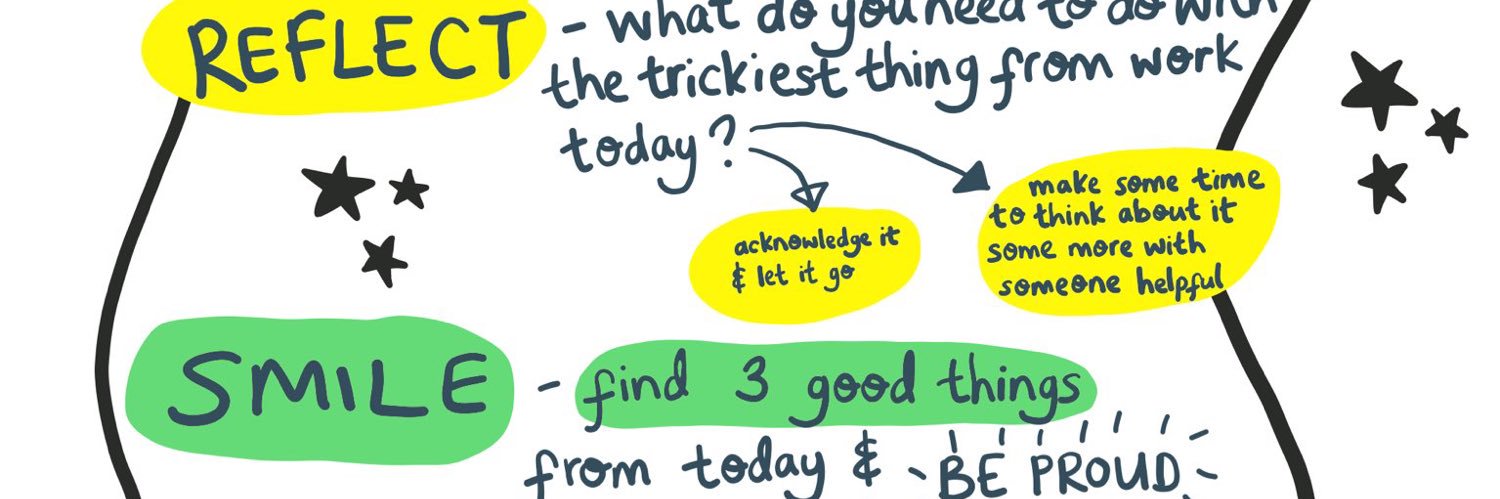 REFLECT - what do you need to do with
the trickiest thing from work
today?
acknowledge it
& let it go
make some time
to think about it
some more with
someone helpful
SMILE - find 3 good things
from today & BE PROUD